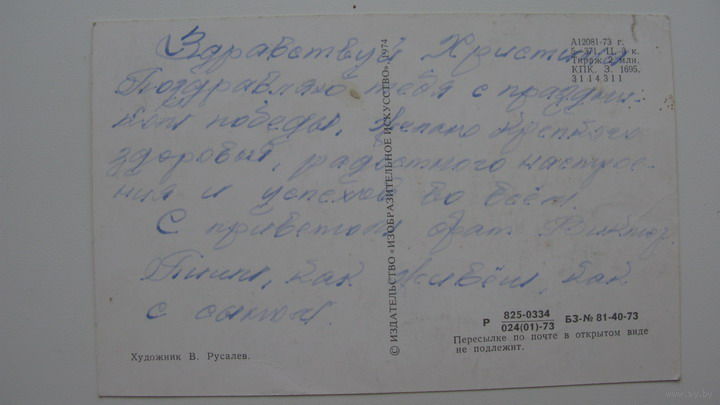 Здравствуй Христина
Поздравляю тебя с праздни-
ком победы, желаю крепкого
здоровья, радостного настрое-
ния и успехов во всём.
С приветом брат Виктор.
Пиши, как живёш, как
с сыном.
Художник В. Русалев.
© ИЗДАТЕЛЬСТВО «ИЗОБРАЗИТЕЛЬНОЕ ИСКУССТВО». 1974
А12081-73 г.
371. Ц. 3 к.
Тираж 2 млн.
КПК. З. 1695.
3114311
Р 825-0334 БЗ-№ 81-40-73
024(01)-73
Пересылке по почте в открытом виде
не подлежит.